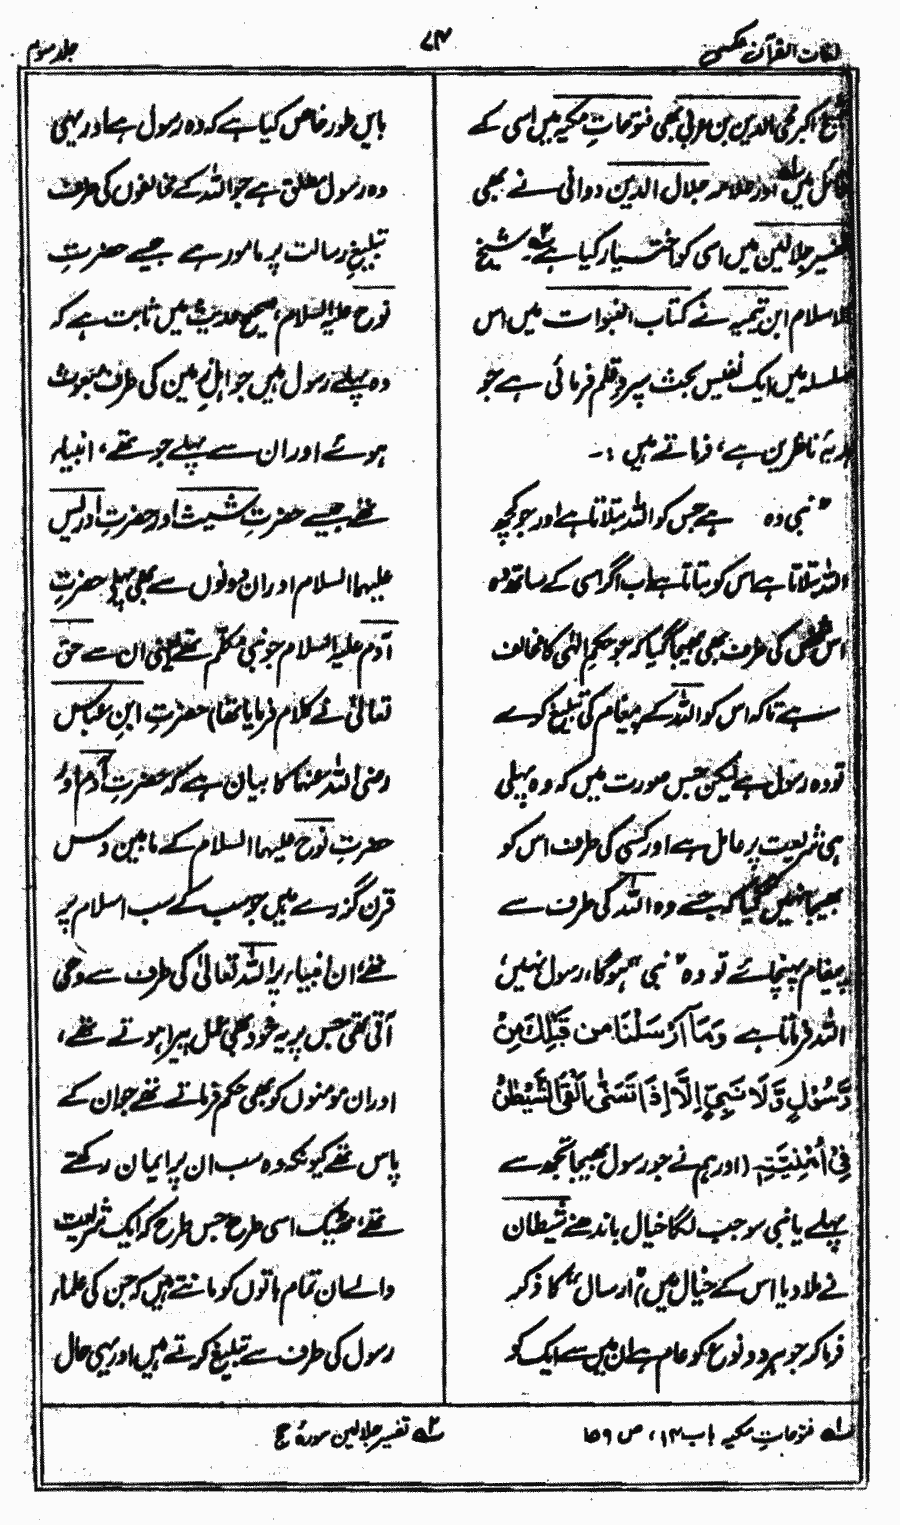 لغات القرآن عکسی
۷۴
جلد سوم
شیخ اکبر محی الدین بن عربی بھی فتوحاتِ مکیہ میں اسی کے
قائل ہیں اور علامہ جلال الدین دوانی نے بھی
تفسیر جلالین میں اسی کو اختیار کیا ہے شیخ
الاسلام ابن تیمیہ نے کتاب النبوات میں اس
سلسلہ میں ایک نفیس بحث سپردِ قلم فرمائی ہے جو
ہدیۂ ناظرین ہے، فرماتے ہیں :۔
”نبی وہ ہے جس کو اللہ بتلاتا ہے اور جو کچھ
اللہ بتلاتا ہے اس کو بتاتا ہے اب اگر اسی کے ساتھ وہ
اس شخص کی طرف بھی بھیجا گیا کہ جو حکمِ الٰہی کا مخالف
ہے تاکہ اس کو اللہ کے پیغام کی تبلیغ کردے
تو وہ رسول ہے لیکن جس صورت میں کہ وہ پہلی
ہی شریعت پر عامل ہے اور کسی کی طرف اس کو
بھیجا نہیں گیا کہ جسے وہ اللہ کی طرف سے
پیغام پہنچائے تو وہ ”نبی“ ہوگا، رسول نہیں،
اللہ فرماتا ہے وَمَا اَرْسَلْنَا مِنْ قَبْلِكَ مِنْ
رَّسُوْلٍ وَّلَا نَبِيٍّ اِلَّا اِذَا تَمَنّٰى اَلْقَى الشَّيْطٰنُ
فِيْ اُمْنِيَّتِهٖ (اور ہم نے جو رسول بھیجا تجھ سے
پہلے یا نبی سو جب لگا خیال باندھنے شیطان
نے ملا دیا اس کے خیال میں) ”ارسال“ کا ذکر
فرما کر جو ہر دو نوع کو عام ہے ان میں سے ایک کو
باس طور خاص کیا ہے کہ وہ رسول ہے اور یہی
وہ رسول مطلق ہے جو اللہ کے مخالفوں کی طرف
تبلیغِ رسالت پر مامور ہے جیسے حضرتِ
نوح علیہ السلام، صحیح حدیث میں ثابت ہے کہ
وہ پہلے رسول ہیں جو اہلِ زمین کی طرف مبعوث
ہوئے اور ان سے پہلے جو تھے، انبیاء
تھے جیسے حضرتِ شیث اور حضرتِ ادریس
علیہما السلام اور ان دونوں سے بھی پہلے حضرتِ
آدم علیہ السلام جو نبی مکلَّم تھے یعنی ان سے حق
تعالٰی نے کلام فرمایا تھا) حضرتِ ابنِ عباس
رضی اللہ عنہما کا بیان ہے کہ حضرتِ آدم اور
حضرتِ نوح علیہما السلام کے مابین دس
قرن گزرے ہیں جو سب کے سب اسلام پر
تھے، ان انبیاء پر اللہ تعالٰی کی طرف سے وحی
آتی تھی جس پر یہ خود بھی عمل پیرا ہوتے تھے،
اور ان مومنوں کو بھی حکم فرماتے تھے جو ان کے
پاس تھے کیونکہ وہ سب ان پر ایمان رکھتے
تھے، ٹھیک اسی طرح جس طرح کہ ایک شریعت
والے ان تمام باتوں کو مانتے ہیں کہ جن کی علماء
رسول کی طرف سے تبلیغ کرتے ہیں اور یہی حال
لہ فتوحاتِ مکیہ باب ۱۴، ص ۱۵۹
۲ہ تفسیر جلالین سورۂ حج